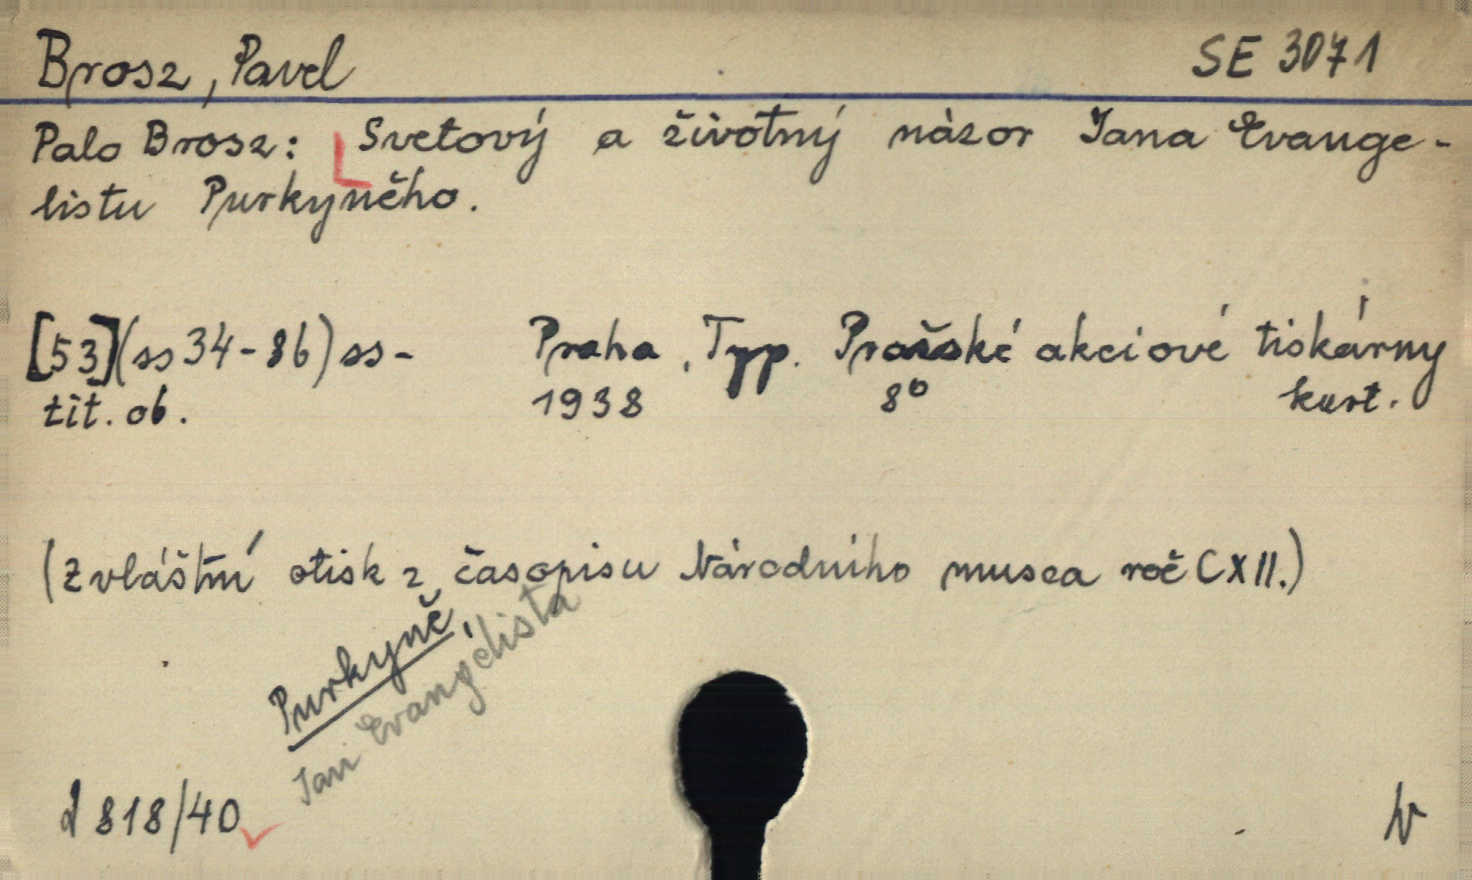 Brosz, Pavel SE 3071
Palo Brosz: Svetový a životný názor Jana Evange-
listu Purkyněho.
[53] (ss 34-86) ss - Praha, Typ. Pražské akciové tiskárny
tit. ob. 1938 8° kart.
(Zvláštní otisk z časopisu Národního musea roč CXII.)
Purkyně,
Jan Evangelista
d 818/40